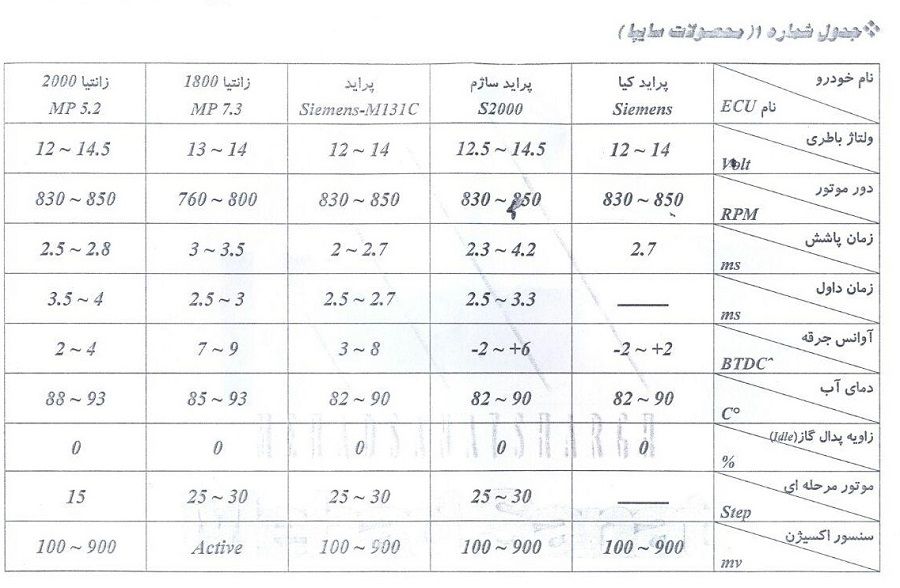 ❖جدول شماره ۱( محصولات سایپا )
نام خودرو
نام ECU
پراید کیا
Siemens
پراید ساژم
S2000
پراید
Siemens-M131C
زانتیا 1800
MP 7.3
زانتیا 2000
MP 5.2
ولتاژ باطری
Volt
12 ~ 14
12.5 ~ 14.5
12 ~ 14
13 ~ 14
12 ~ 14.5
دور موتور
RPM
830 ~ 850
830 ~ 850
830 ~ 850
760 ~ 800
830 ~ 850
زمان پاشش
ms
2.7
2.3 ~ 4.2
2 ~ 2.7
3 ~ 3.5
2.5 ~ 2.8
زمان داول
ms
——
2.5 ~ 3.3
2.5 ~ 2.7
2.5 ~ 3
3.5 ~ 4
آوانس جرقه
BTDC^
-2 ~ +2
-2 ~ +6
3 ~ 8
7 ~ 9
2 ~ 4
دمای آب
C°
82 ~ 90
82 ~ 90
82 ~ 90
85 ~ 93
88 ~ 93
زاویه پدال گاز(Idle)
%
0
0
0
0
0
موتور مرحله ای
Step
——
25 ~ 30
25 ~ 30
25 ~ 30
15
سنسور اکسیژن
mv
100 ~ 900
100 ~ 900
100 ~ 900
Active
100 ~ 900